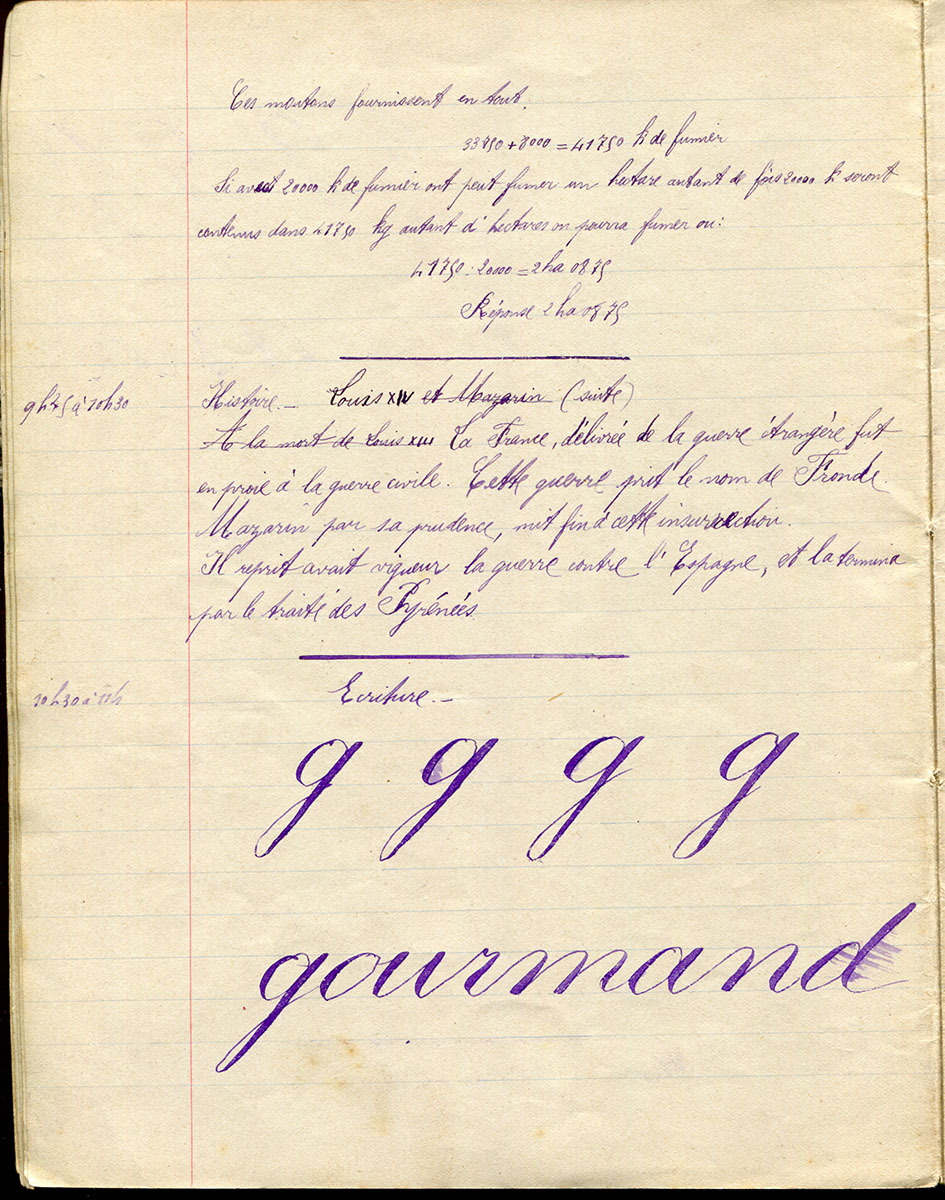 Ces moutons fournissent en tout.
33750 + 8000 = 41750 k de fumier
Si avec 20000 k de fumier ont peut fumer un hectare autant de fois 20000 k seront
contenus dans 41750 kg autant d'hectares on pourra fumer ou:
41750 : 20000 = 2ha 0875
Réponse 2ha 0875
9h45 à 10h30
Histoire._ Louis XIV et Mazarin (suite)
A la mort de Louis XIII La France, délivrée de la guerre étrangère fut
en proie à la guerre civile. Cette guerre prit le nom de Fronde.
Mazarin par sa prudence, mit fin à cette insurrection.
Il reprit avait vigueur la guerre contre l'Espagne, et la termina
par le traité des Pyrénées
10h30 à 11h
Ecriture._
g g g g
gourmand